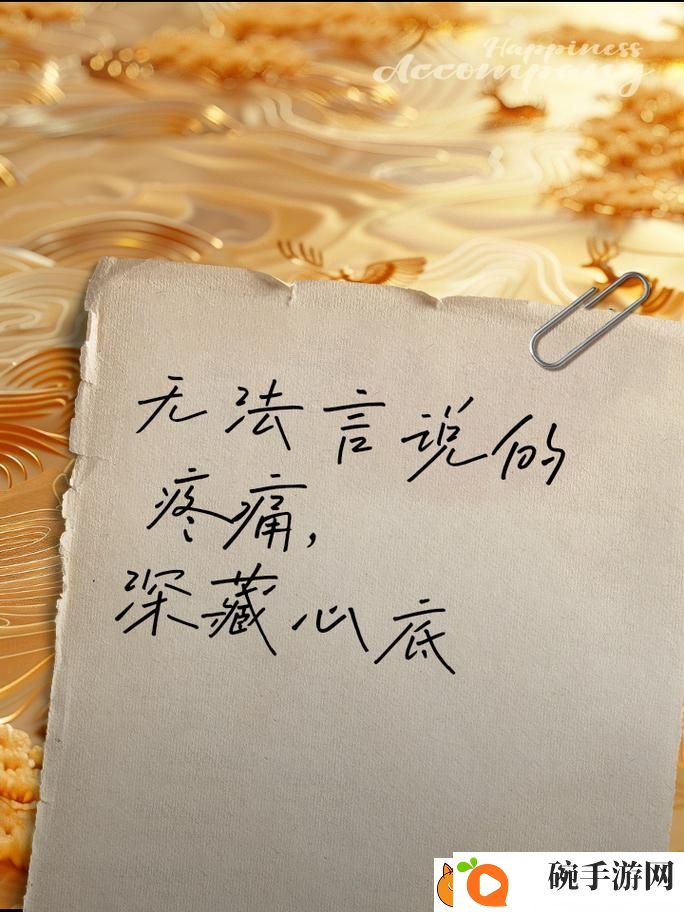 Happiness
Accompany
无法言说的
疼痛，
深藏心底
碗手游网